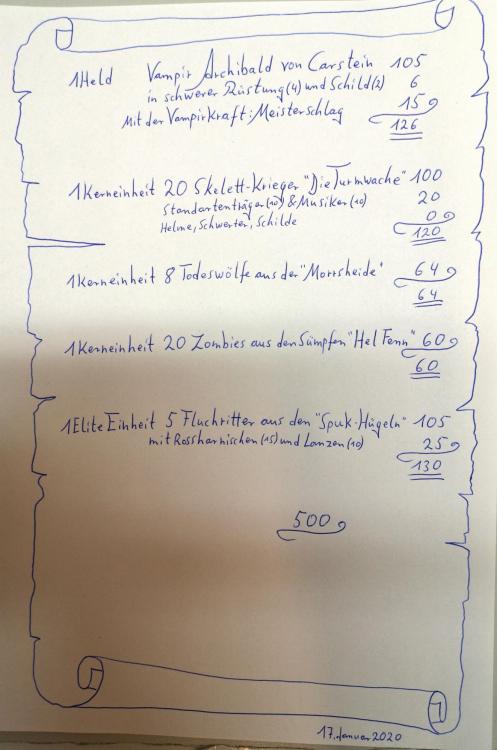 1 Held Vampir Archibald von Carstein 105
in schwerer Rüstung (4) und Schild (2) 6
Mit der Vampirkraft: Meisterschlag 15
126
1 Kerneinheit 20 Skelett-Krieger "Die Turmwache" 100
Standartenträger (10) & Musiker (10) 20
Helme, Schwerter, Schilde 0
120
1 Kerneinheit 8 Todeswölfe aus der "Morrsheide" 64
64
1 Kerneinheit 20 Zombies aus den Sümpfen "Hel Fenn" 60
60
1 Elite Einheit 5 Fluchritter aus den "Spuk-Hügeln" 105
mit Rossharnischen (15) und Lanzen (10) 25
130
500
17. Januar 2020